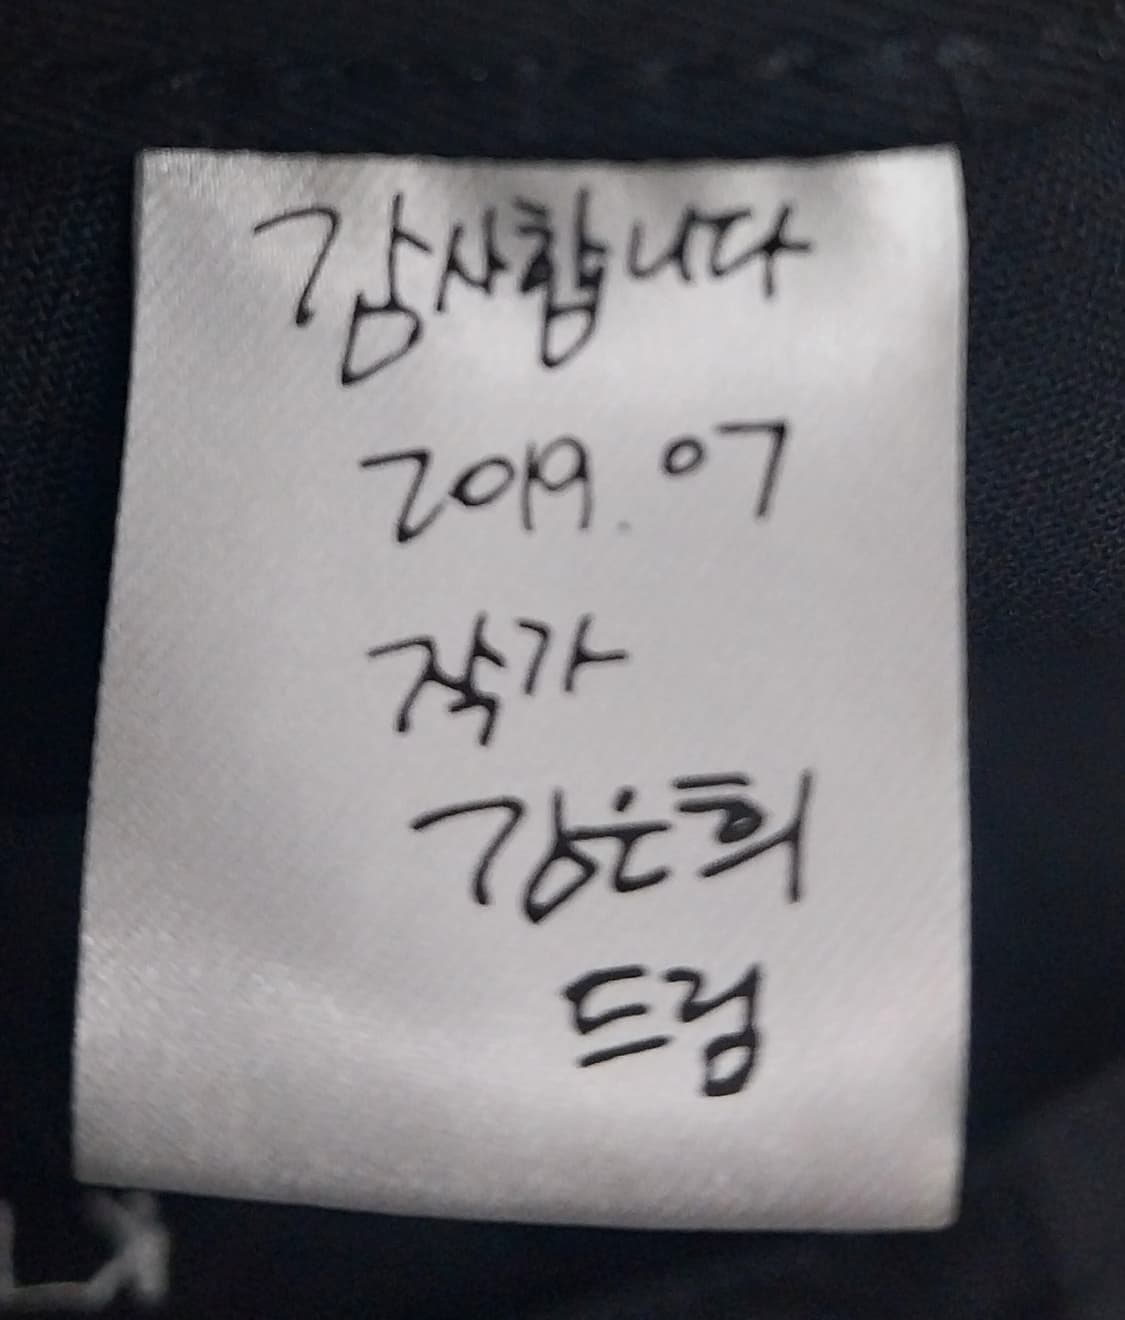 감사합니다
2019.07
작가
강은희
드림